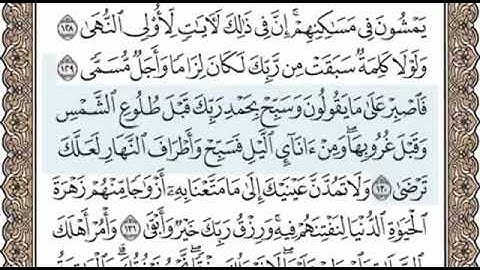 يَمْشُونَ فِى مَسَٰكِنِهِمْ ۚ إِنَّ فِى ذَٰلِكَ لَءَايَٰتٍ لِّأُو۟لِى ٱلنُّهَىٰ ١٢٨
وَلَوْلَا كَلِمَةٌ سَبَقَتْ مِن رَّبِّكَ لَكَانَ لِزَامًا وَأَجَلٌ مُّسَمًّى ١٢٩
فَٱصْبِرْ عَلَىٰ مَا يَقُولُونَ وَسَبِّحْ بِحَمْدِ رَبِّكَ قَبْلَ طُلُوعِ ٱلشَّمْسِ
وَقَبْلَ غُرُوبِهَا ۖ وَمِنْ ءَانَآئِ ٱلَّيْلِ فَسَبِّحْ وَأَطْرَافَ ٱلنَّهَارِ لَعَلَّكَ
تَرْضَىٰ ١٣٠ وَلَا تَمُدَّنَّ عَيْنَيْكَ إِلَىٰ مَا مَتَّعْنَا بِهِۦٓ أَزْوَٰجًا مِّنْهُمْ زَهْرَةَ
ٱلْحَيَوٰةِ ٱلدُّنْيَا لِنَفْتِنَهُمْ فِيهِ ۚ وَرِزْقُ رَبِّكَ خَيْرٌ وَأَبْقَىٰ ١٣١ وَأْمُرْ أَهْلَكَ